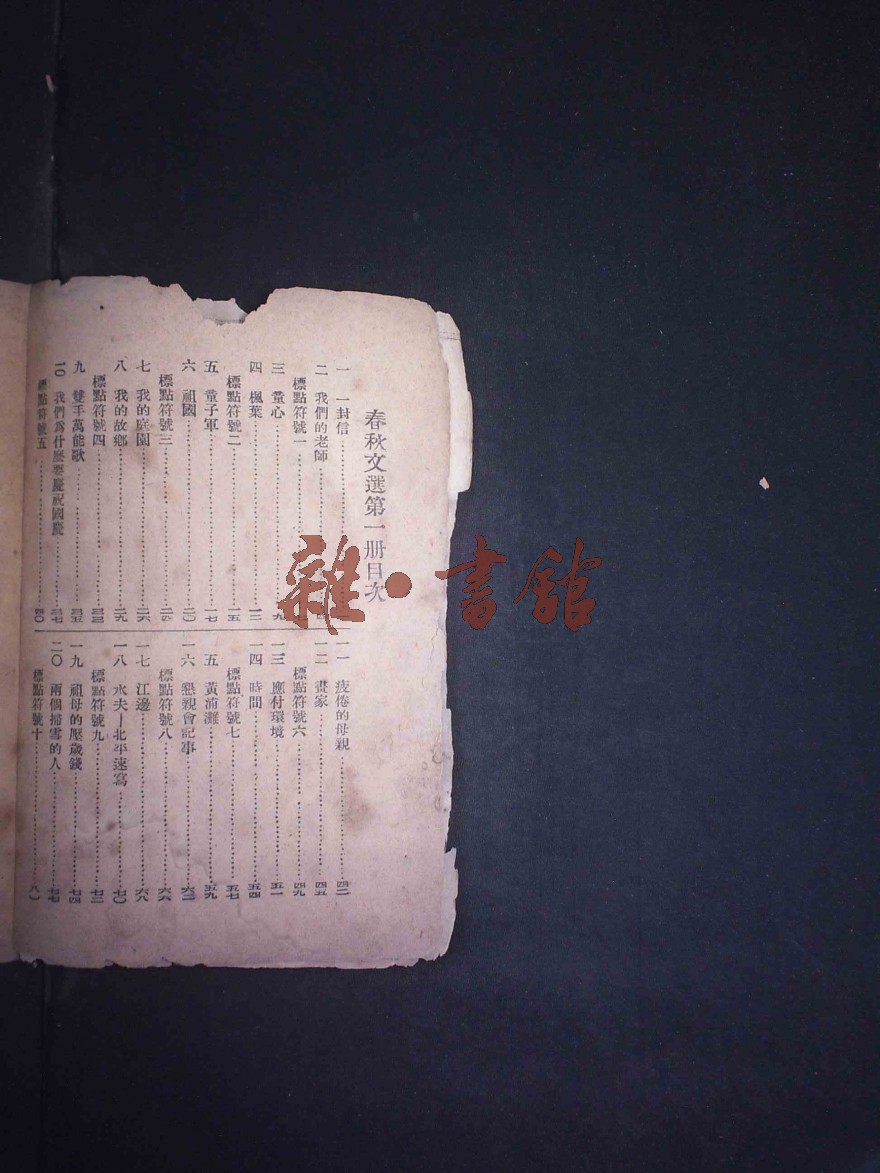 春秋文選第一册目次
一 一封信
二 我們的老師
標點符號一
三 童心 九
四 楓葉 一三
標點符號二 一五
五 童子軍 一七
六 祖國 二〇
標點符號三 二四
七 我的庭園 二六
八 我的故鄉 二九
標點符號四 三三
九 雙手萬能歌 三五
一〇 我們爲什麼要慶祝國慶 三七
標點符號五 四〇
一一 疲倦的母親 四二
一二 畫家 四五
標點符號六 四九
一三 應付環境 五一
一四 時間 五四
標點符號七 五七
五 黃浦灘 五九
一六 懇親會記事 六二
標點符號八 六六
一七 江邊 六八
一八 水夫—北平速寫 七〇
標點符號九 七二
一九 祖母的壓歲錢 七四
二〇 兩個掃雪的人 七七
標點符號十 八
雜·書館